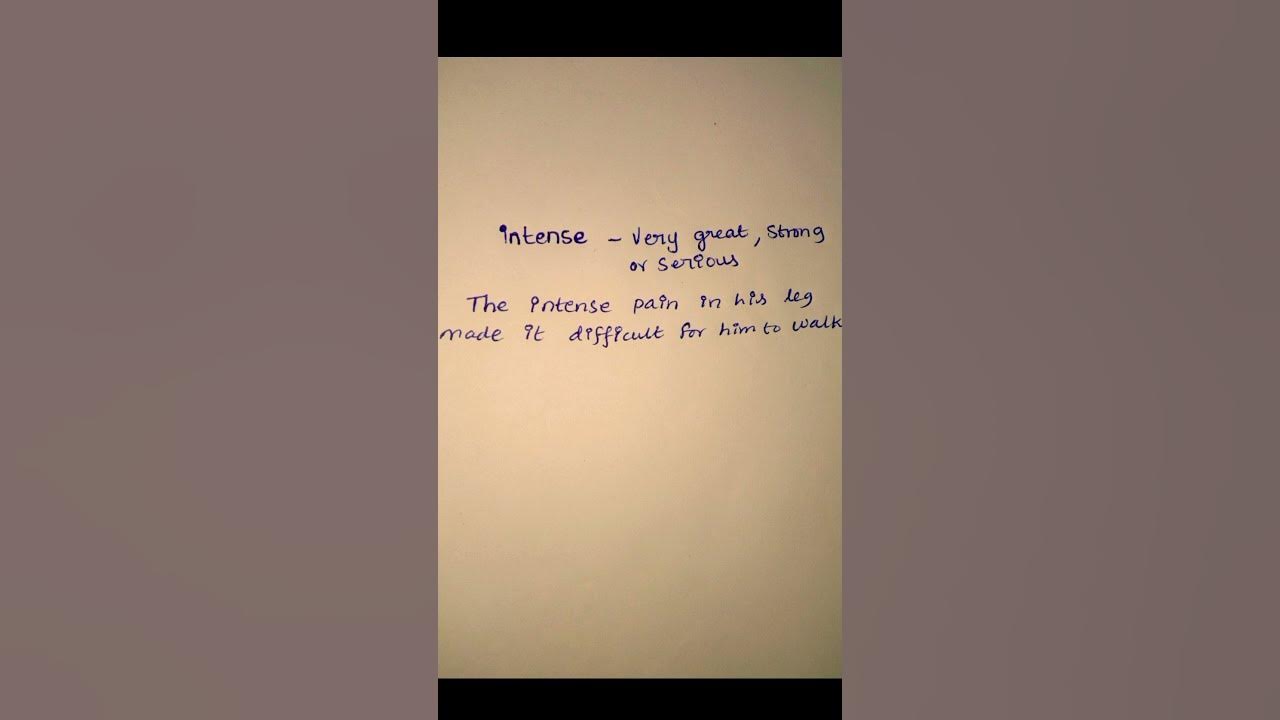 intense – Very great, Strong
or serious
The intense pain in his leg
made it difficult for him to walk